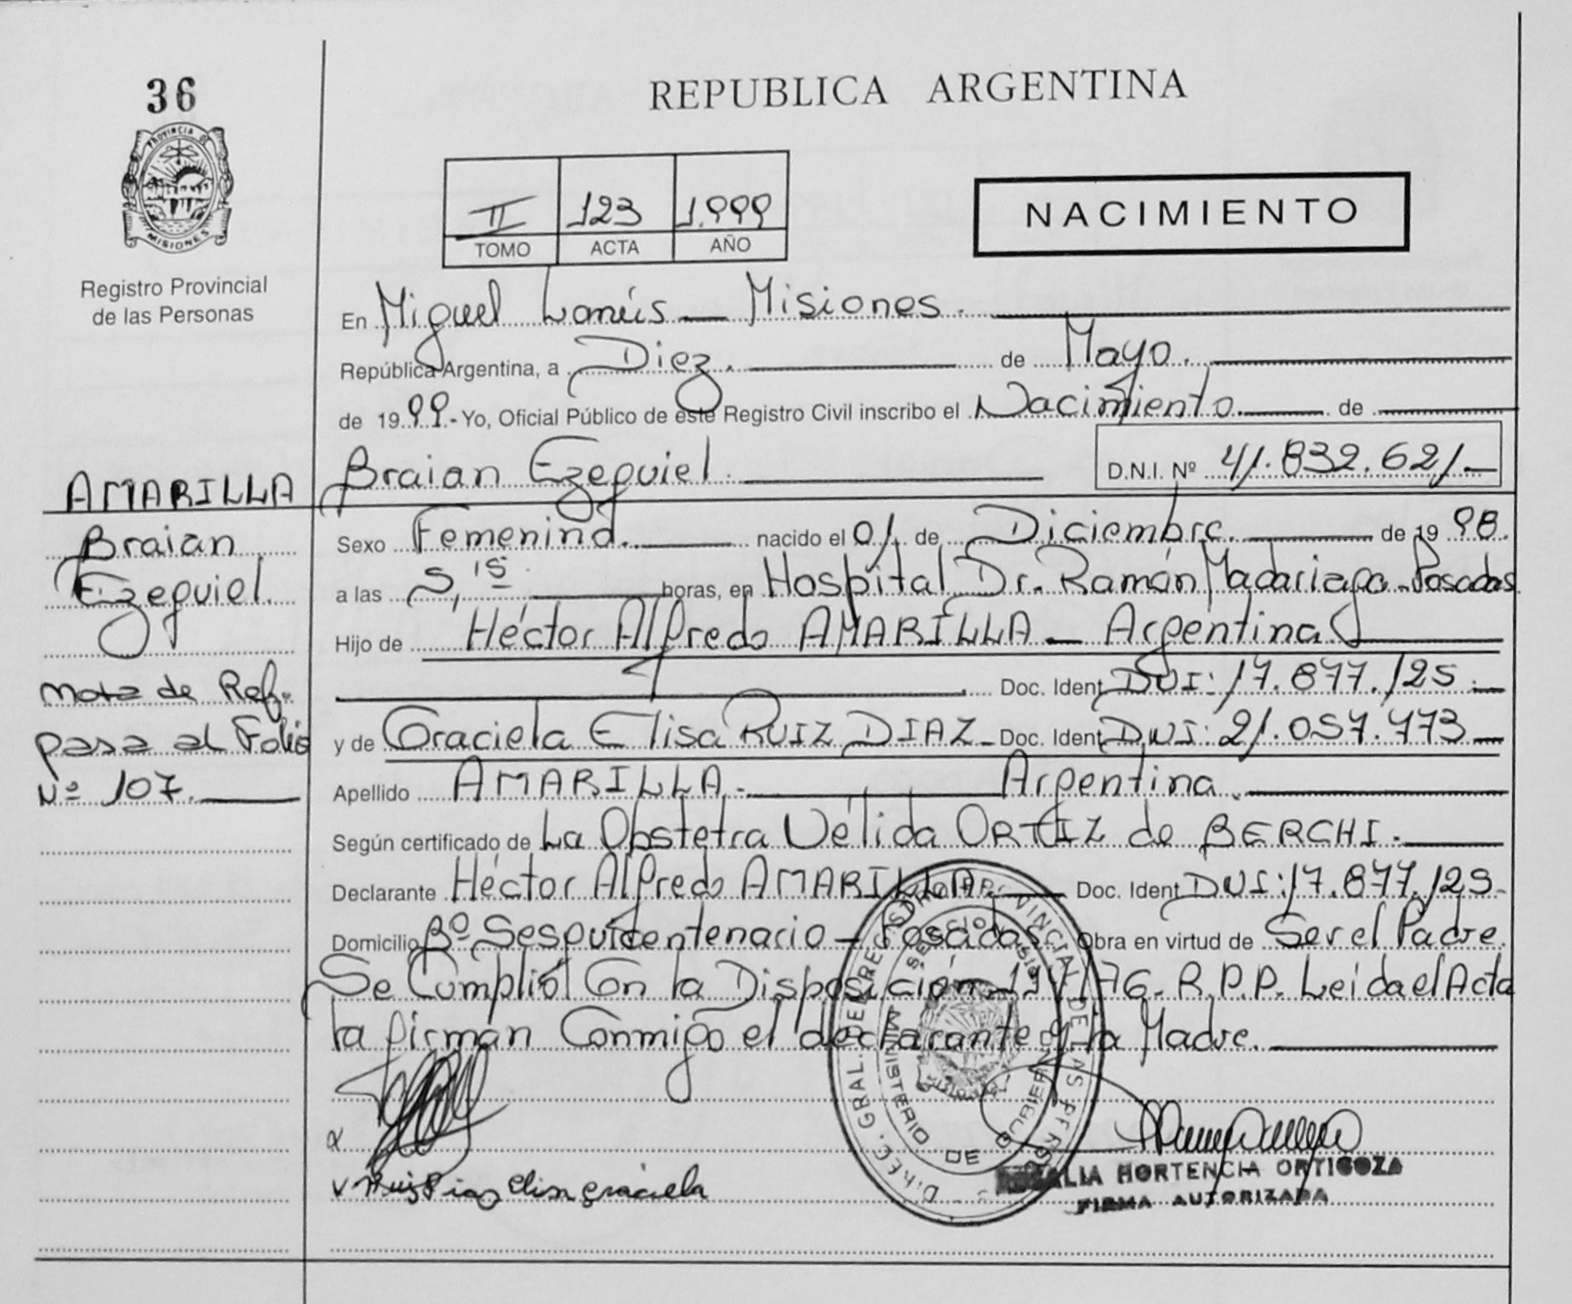 36
REPUBLICA ARGENTINA
PROVINCIA D
MISIONES
Registro Provincial
de las Personas
II 123 1.999
TOMO ACTA AÑO
NACIMIENTO
En Miguel Lanús — Misiones.
República Argentina, a Diez. de Mayo.
de 1999.- Yo, Oficial Público de este Registro Civil inscribo el Nacimiento de
AMARILLA Braian Ezequiel. D.N.I. Nº 41.832.621
Braian
Ezequiel.
Sexo Femenino. nacido el 01 de Diciembre. de 1998.
a las 5,15 horas, en Hospital Dr. Ramón Madariaga - Posadas
Hijo de Héctor Alfredo AMARILLA — Argentina
Nota de Ref.
pasa al Folio
Nº 107.
Doc. Ident. DNI: 17.877.125
y de Graciela Elisa RUIZ DIAZ - Doc. Ident. DNI: 21.057.773
Apellido AMARILLA.- Argentina.
Según certificado de La Obstetra Vélida ORTIZ de BERCHI.
Declarante Héctor Alfredo AMARILLA Doc. Ident. DNI: 17.877.125-
Domicilio Bº Sesquicentenario - Posadas Obra en virtud de Ser el Padre.
Se Cumplió Con la Disposición 191/76 - R.P.P. Leída el Acta
la firman Conmigo el declarante y la Madre.
DIREC. GRAL. DEL REGISTRO PROVINCIAL DE LAS PERS
MINISTERIO DE GOBIERN
Ruiz Diaz Elisa graciela
ROSALIA HORTENCIA ORTIGOZA
FIRMA AUTORIZADA